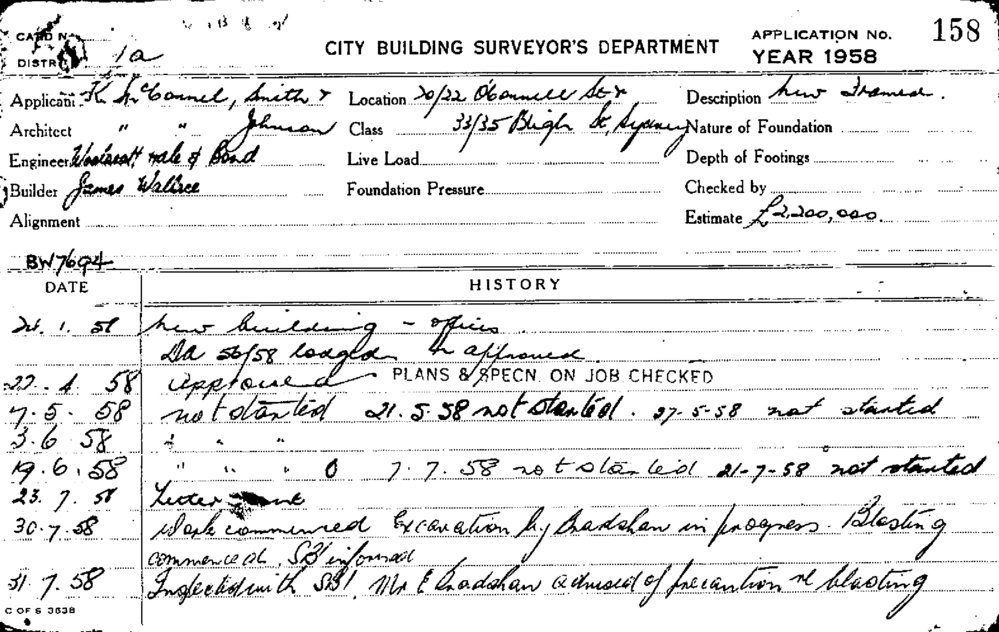 CARD N
DISTR 1a
CITY BUILDING SURVEYOR'S DEPARTMENT
APPLICATION No. 158
YEAR 1958
Applicant K McConnel, Smith & Location 20/22 O'Connell St & Description New Framed.
Architect " " Johnson Class 33/35 Bligh St, Sydney Nature of Foundation
Engineer Woolacott Hale & Bond Live Load Depth of Footings
Builder James Wallace Foundation Pressure Checked by
Alignment Estimate £2,200,000.
BW7694
DATE HISTORY
24. 1. 58 New building - offices.
DA 56/58 lodged approved
22. 4. 58 Approved PLANS & SPECN. ON JOB CHECKED
7. 5. 58 not started 21. 5. 58 not started. 27-5-58 not started
3. 6 58 " " "
19. 6. 58 " " " 0 7. 7. 58 not started 21-7-58 not started
23. 7. 58 Letter
30-7-58 Work commenced Excavation by Bradshaw in progress. Blasting
commenced. SBI informed
31. 7. 58 Inspected with SBI. Mr E Bradshaw advised of precaution re blasting
C OF S 3638